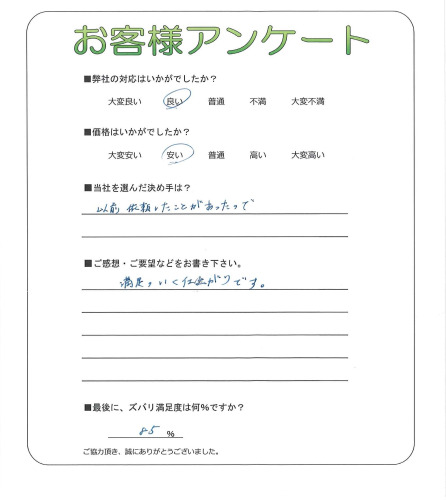 お客様アンケート
■弊社の対応はいかがでしたか？
大変良い 良い 普通 不満 大変不満
■価格はいかがでしたか？
大変安い 安い 普通 高い 大変高い
■当社を選んだ決め手は？
以前依頼したことがあったので
■ご感想・ご要望などをお書き下さい。
満足のいく仕上がりです。
■最後に、ズバリ満足度は何%ですか？
85 %
ご協力頂き、誠にありがとうございました。